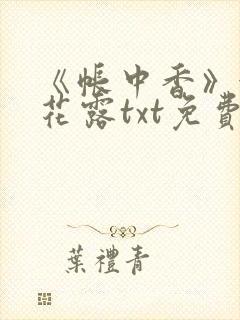 《帐中香》
花露txt免費
葉禮青